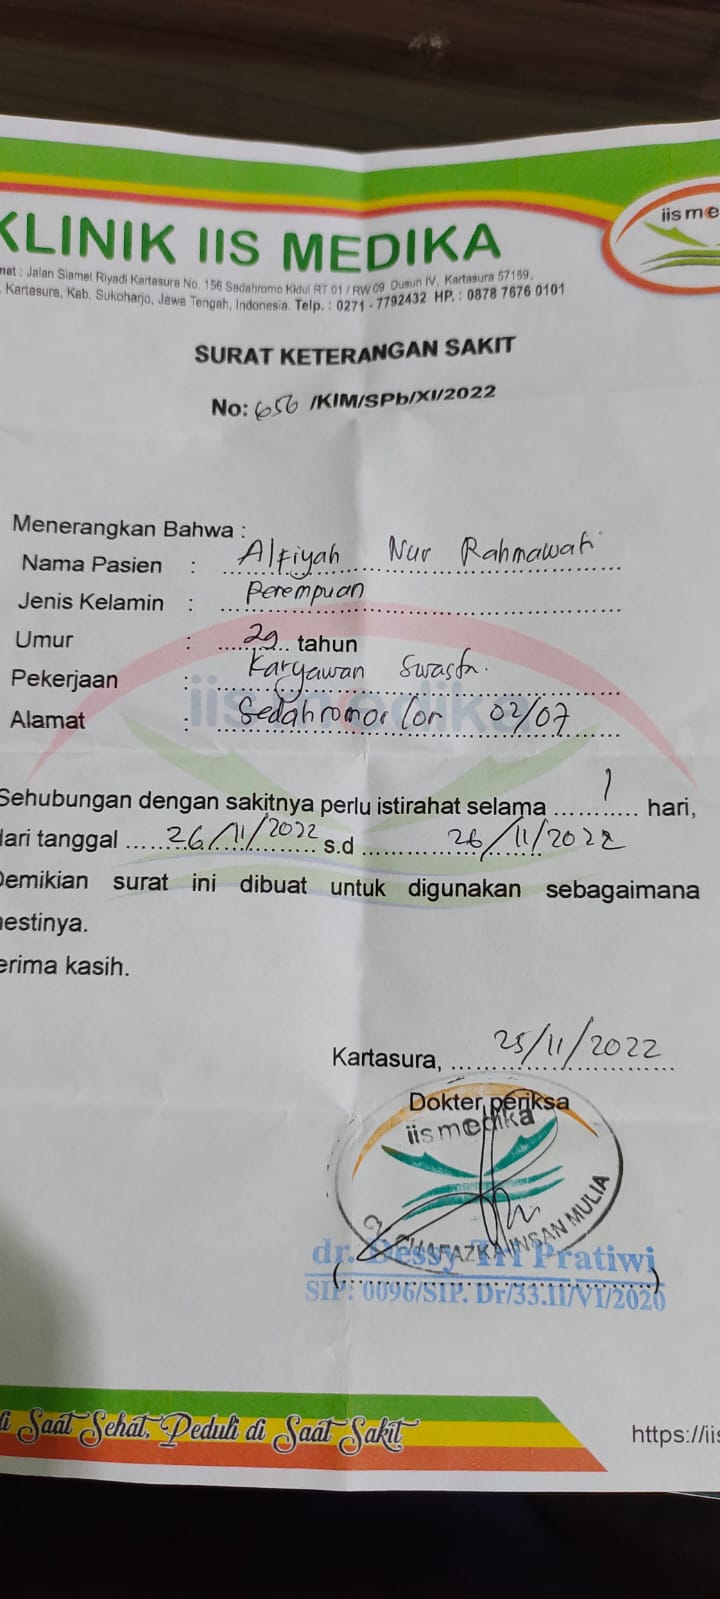 KLINIK IIS MEDIKA
iis me
mat : Jalan Slamet Riyadi Kartasura No. 156 Sedahromo Kidul RT 01 / RW 09 Dusun IV, Kartasura 57169,
. Kartasura, Kab. Sukoharjo, Jawa Tengah, Indonesia. Telp. : 0271 - 7792432 HP. : 0878 7676 0101
SURAT KETERANGAN SAKIT
No: 656 /KIM/SPb/XI/2022
Menerangkan Bahwa :
Nama Pasien : Alfiyah Nur Rahmawati
Jenis Kelamin : Perempuan
Umur : 29 tahun
Pekerjaan : Karyawan Swasta.
Alamat : Sedahromo Lor 02/07
iis medika
Sehubungan dengan sakitnya perlu istirahat selama 1 hari,
dari tanggal 26/11/2022 s.d 26/11/2022
Demikian surat ini dibuat untuk digunakan sebagaimana
mestinya.
erima kasih.
Kartasura, 25/11/2022
Dokter periksa
iis medika
INSAN MULIA
dr. Dessy Tri Pratiwi
SIP: 0096/SIP. Dr/33.11/VI/2020
di Saat Sehat, Peduli di Saat Sakit
https://iis